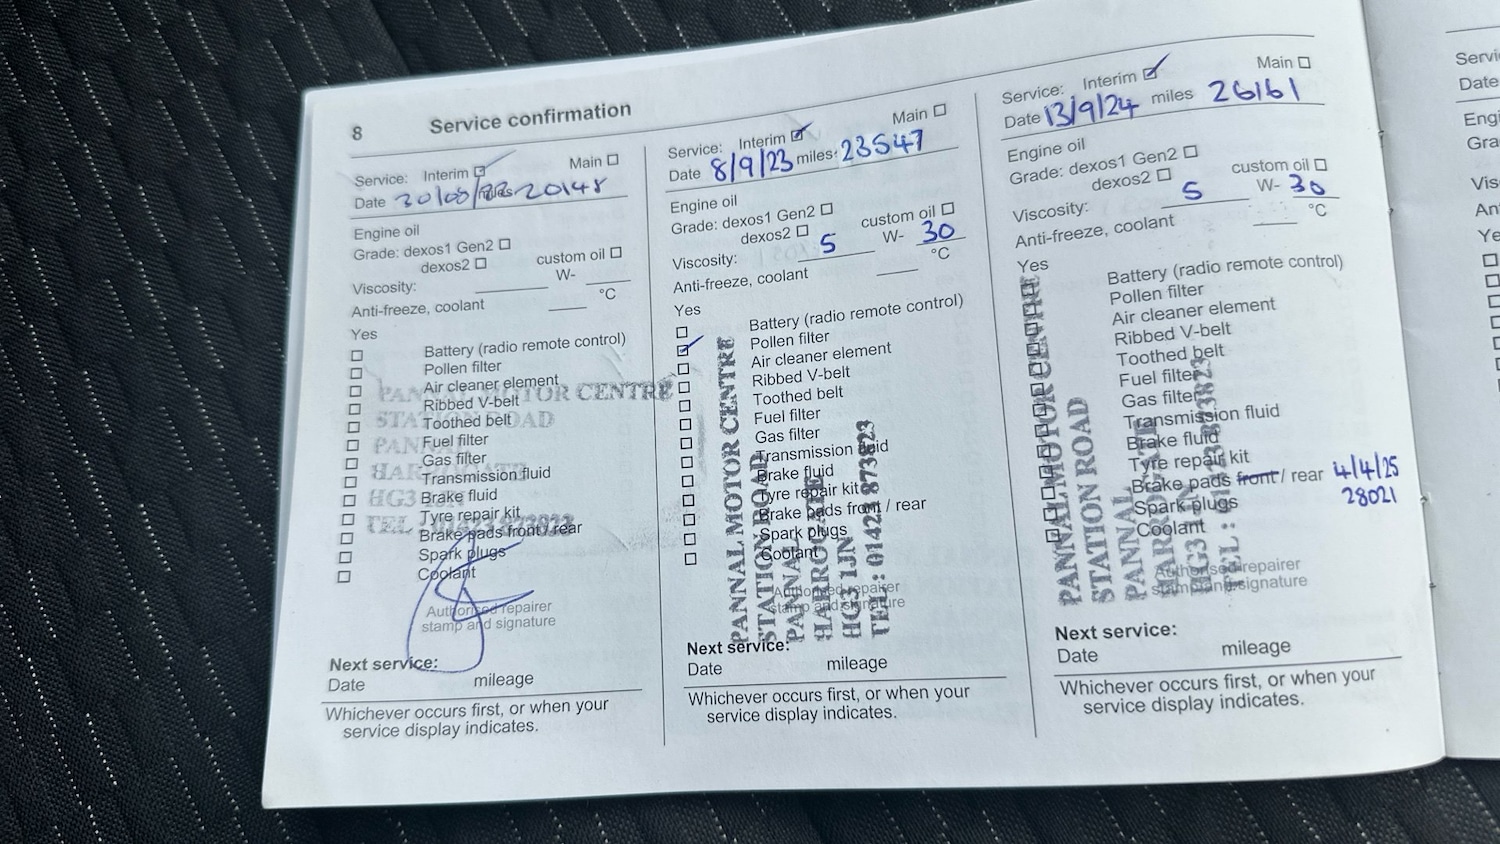 8 Service confirmation
Service: Interim Main
Date 30/08/22 miles 20148
Engine oil
Grade: dexos1 Gen2
dexos2 custom oil
Viscosity: W-
Anti-freeze, coolant °C
Yes
Battery (radio remote control)
Pollen filter
Air cleaner element
Ribbed V-belt
Toothed belt
Fuel filter
Gas filter
Transmission fluid
Brake fluid
Tyre repair kit
Brake pads front / rear
Spark plugs
Coolant
PANNAL MOTOR CENTRE
STATION ROAD
PANNAL
HARROGATE
HG3 1JN
Authorised repairer
stamp and signature
Next service:
Date mileage
Whichever occurs first, or when your
service display indicates.
Service: Interim Main
Date 8/9/23 miles: 23547
Engine oil
Grade: dexos1 Gen2
dexos2 custom oil
Viscosity: 5 W- 30
Anti-freeze, coolant °C
Yes
Battery (radio remote control)
Pollen filter
Air cleaner element
Ribbed V-belt
Toothed belt
Fuel filter
Gas filter
Transmission fluid
Brake fluid
Tyre repair kit
Brake pads front / rear
Spark plugs
Coolant
PANNAL MOTOR CENTRE
STATION ROAD
PANNAL
HARROGATE
HG3 1JN
TEL : 01423 873823
Authorised repairer
stamp and signature
Next service:
Date mileage
Whichever occurs first, or when your
service display indicates.
Service: Interim Main
Date 13/9/24 miles 26161
Engine oil
Grade: dexos1 Gen2
dexos2 custom oil
Viscosity: 5 W- 30
Anti-freeze, coolant °C
Yes
Battery (radio remote control)
Pollen filter
Air cleaner element
Ribbed V-belt
Toothed belt
Fuel filter
Gas filter
Transmission fluid
Brake fluid
Tyre repair kit
Brake pads front / rear 4/4/25
Spark plugs 28021
Coolant
PANNAL MOTOR CENTRE
STATION ROAD
PANNAL
HARROGATE
HG3 1JN
TEL :
Authorised repairer
stamp and signature
Next service:
Date mileage
Whichever occurs first, or when your
service display indicates.
Date